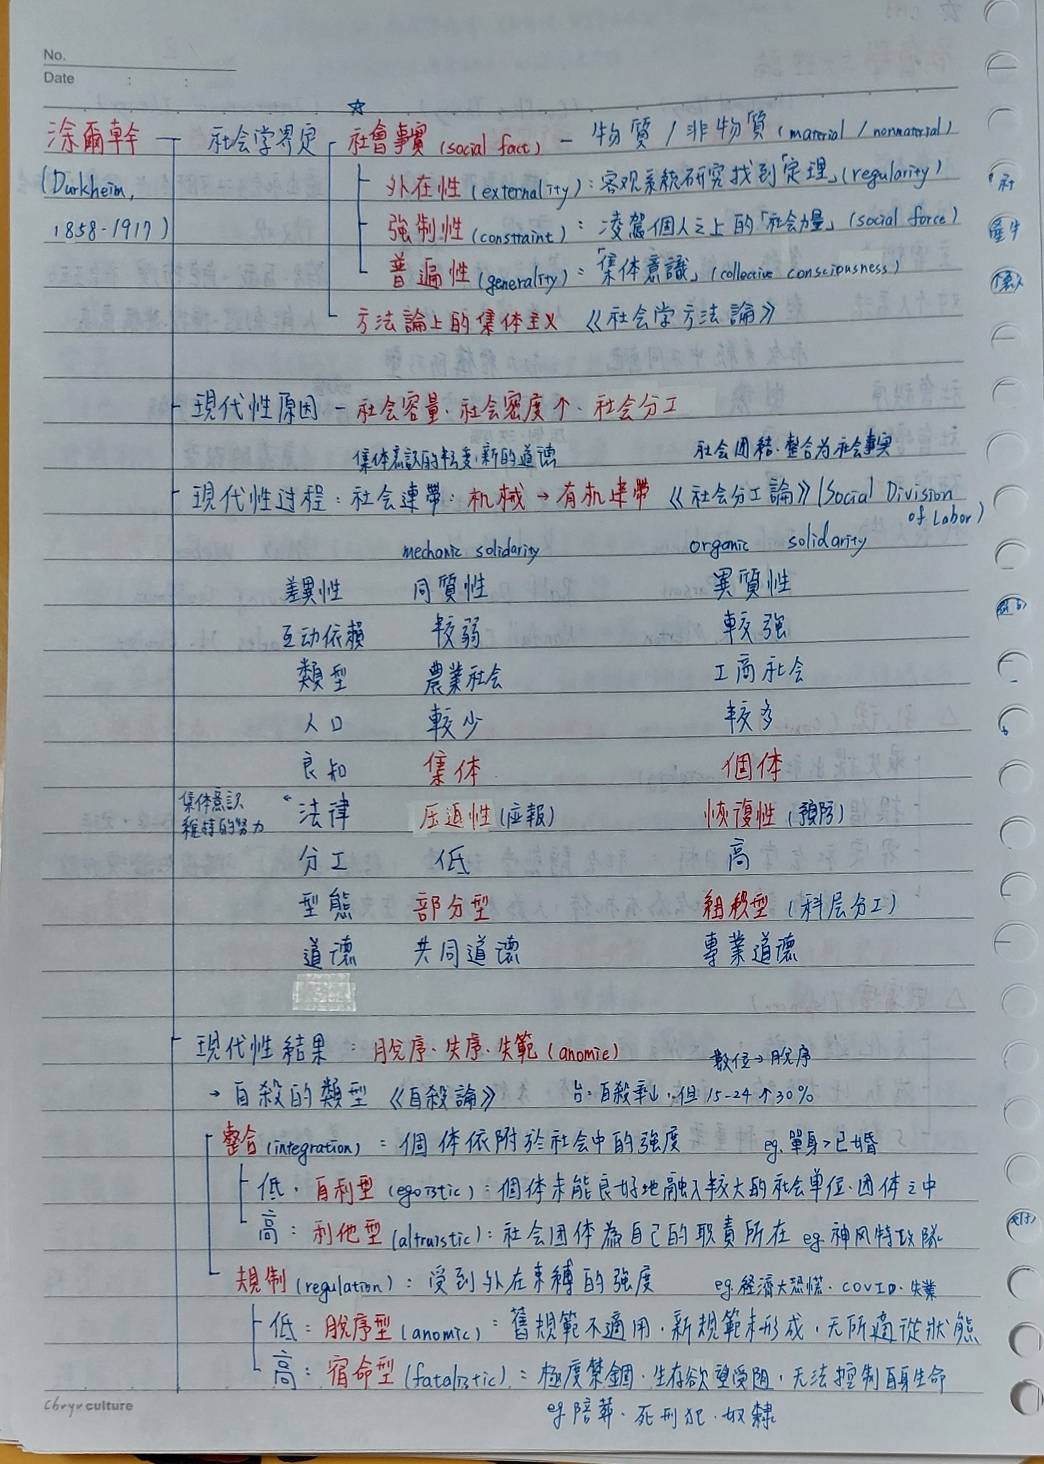 No.
Date : :
☆
涂爾幹 — 社会学界定 社會事實 (social fact) – 物質 / 非物質 (material / nonmaterial)
(Durkheim, 外在性 (externality) : 客观系統研究找到「定理」(regularity)
1858-1917) 強制性 (constraint) : 凌駕個人之上的「社会力量」(social force)
普遍性 (generality) : 「集体意識」(collective consciousness)
方法論上的集体主义 《社会学方法論》
現代性原因 – 社会容量、社会密度个、社会分工
集体意識的轉变,新的道德 社会团結、整合为社会事実
現代性过程:社会連帶:机械→有机連帶 《社会分工論》(Social Division of Labor)
mechanic solidarity organic solidarity
差異性 同質性 異質性
互动依賴 較弱 較強
類型 農業社会 工商社会
人口 較少 較多
良知 集体 個体
集体意識 ← 法律 压迫性 (应報) 恢復性 (預防)
維持的努力
分工 低 高
型態 部分型 組織型 (科层分工)
道德 共同道德 專業道德
現代性結果 : 脫序、失序、失範 (anomie)
數位→脫序
→ 自殺的類型 《自殺論》 台:自殺率↓,但15-24↑30%
整合 (integration) : 個体依附於社会中的強度 eg. 單身>已婚
低:自利型 (egoistic) : 個体未能良好地融入較大的社会单位、团体之中
高:利他型 (altruistic) : 社会团体為自己的职責所在 eg. 神风特攻隊
規制 (regulation) : 受到外在束縛的強度 eg. 经濟大恐慌、COVID、失業
低:脫序型 (anomic) : 舊規範不適用,新規範未形成,无所適從狀態
高:宿命型 (fatalistic) : 極度禁錮、生存欲望受阻,无法控制自身生命
eg. 陪葬、死刑犯、奴隸
Chryr culture